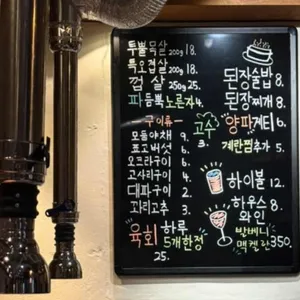 투뿔목살 200g 18.
특오겹살 200g 18.
껍 살 250g 25.
파듬뿍노른자 4.
구이류
모둠야채 9.
표고버섯 6.
오크라구이 6.
고사리구이 4.
대파구이 2.
꽈리고추 3.
육회 하루 5개한정
25.
고수
3.
된장술밥 8.
된장찌개 8.
양파게티 6.
계란찜추가 5.
하이볼 12.
하우스 와인 8.
발베니
맥켈란 350.